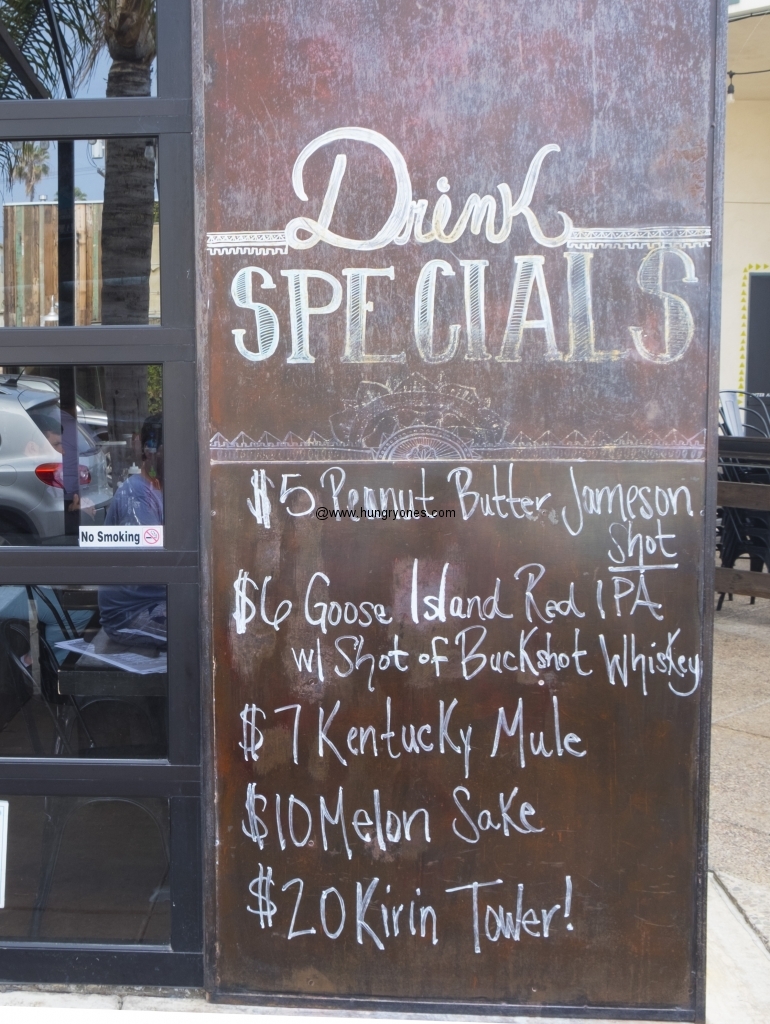 Drink
SPECIALS
$5 Peanut Butter Jameson
Shot
@www.hungryones.com
No Smoking
$6 Goose Island Red IPA
w/ Shot of Buckshot Whiskey
$7 Kentucky Mule
$10 Melon Sake
$20 Kirin Tower!